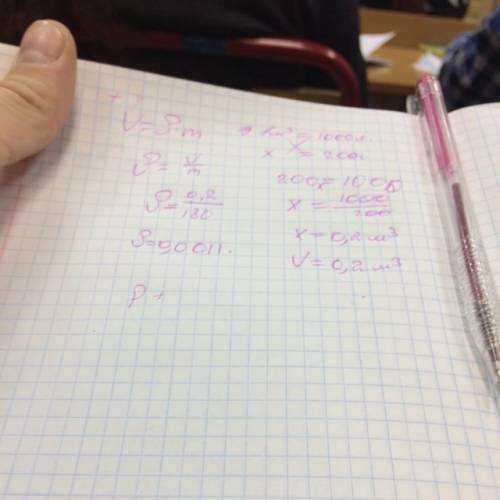 V=ρ·m
ρ=V/m
ρ=0,2/180
ρ=0,0011.
ρ
1м³=1000л.
x=200л
200x=1000
x=1000/200
x=0,2м³
V=0,2м³